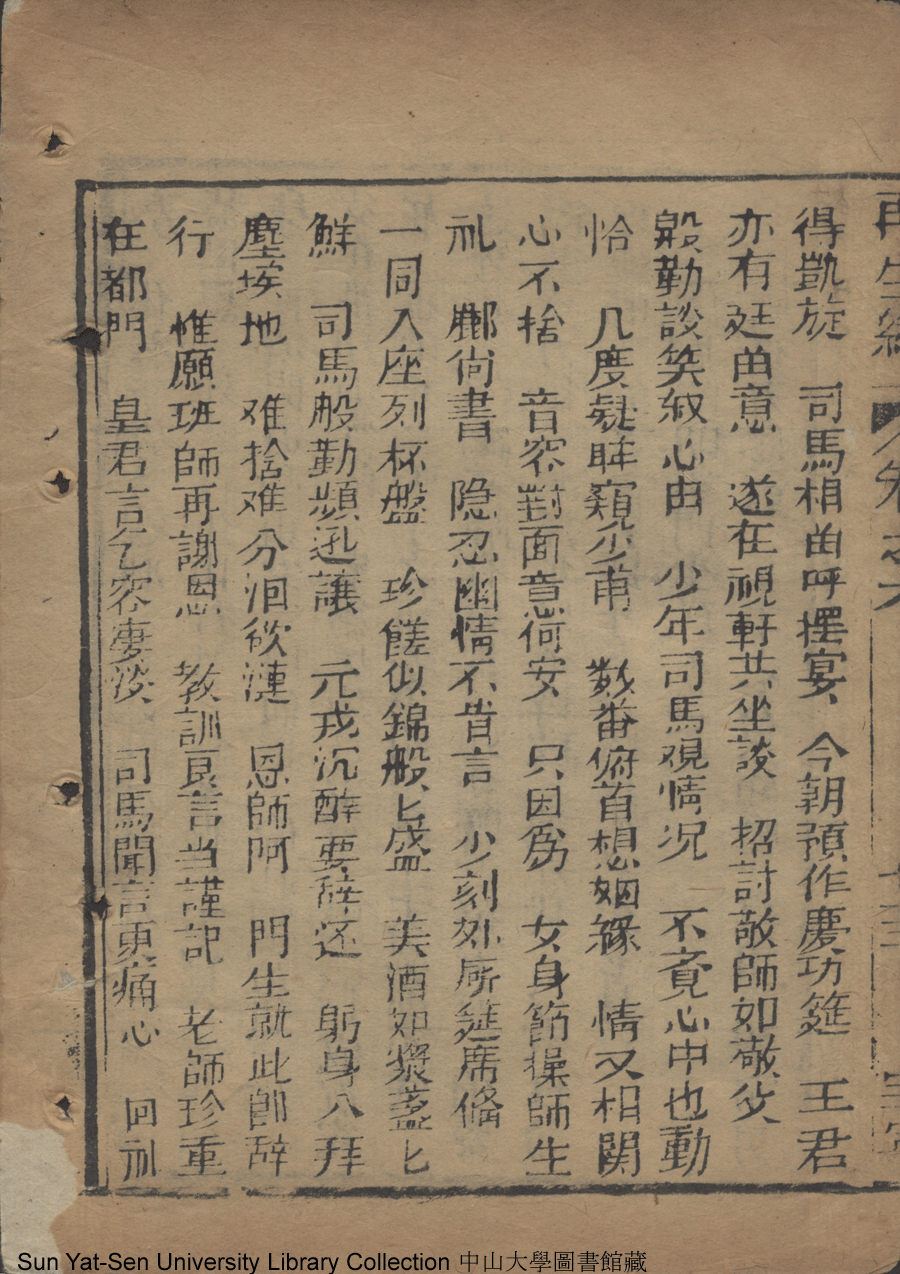 再生緣 卷之六
得凱旋 司馬相由呼擺宴 今朝預作慶功筵 王君
亦有延曲意 遂在視軒共坐談 招討敬師如敬父
殷勤談笑叙心由 少年司馬观情况 不竟心中也動
恰 几度凝眸窺少甫 数番俯首想姻緣 情又相関
心不捨 音容對面意何安 只因為 女身節操師生
礼 酈尙書 隐忍幽情不肯言 少刻外厛筵席俻
一同入座列杯盤 珍饈似錦般匕盛 美酒如漿盞匕
鮮 司馬般勤頻迅讓 元戎沉醉要辞还 躬身八拜
塵埃地 难捨难分泪欲漣 恩師阿 門生就此卽辞
行 惟願班師再謝恩 教訓良言当謹記 老師珍重
在都門 皇君言乞容凄淡 司馬聞言更痛心 回礼
Sun Yat-Sen University Library Collection 中山大學圖書館藏